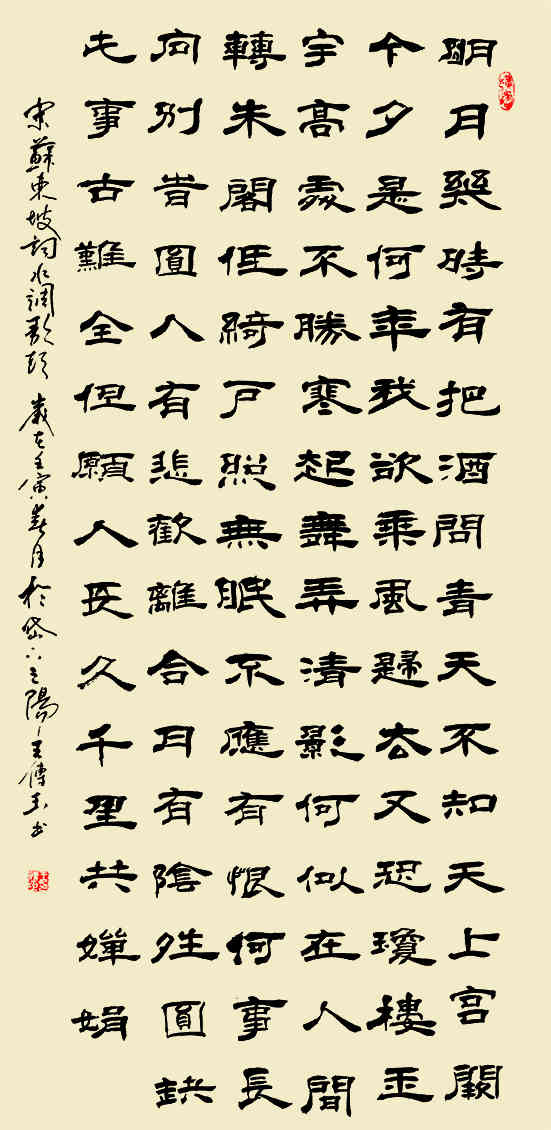 明月幾時有把酒問青天不知天上宮闕
今夕是何年我欲乘風歸去又恐瓊樓玉
宇高處不勝寒起舞弄清影何似在人間
轉朱閣低綺戶照無眠不應有恨何事長
向別旹圓人有悲歡離合月有陰夝圓缺
此事古難全但願人長久千里共嬋娟
宋蘇東坡詞水調歌頭 歲在壬寅春月於岱下之陽王傳玉书